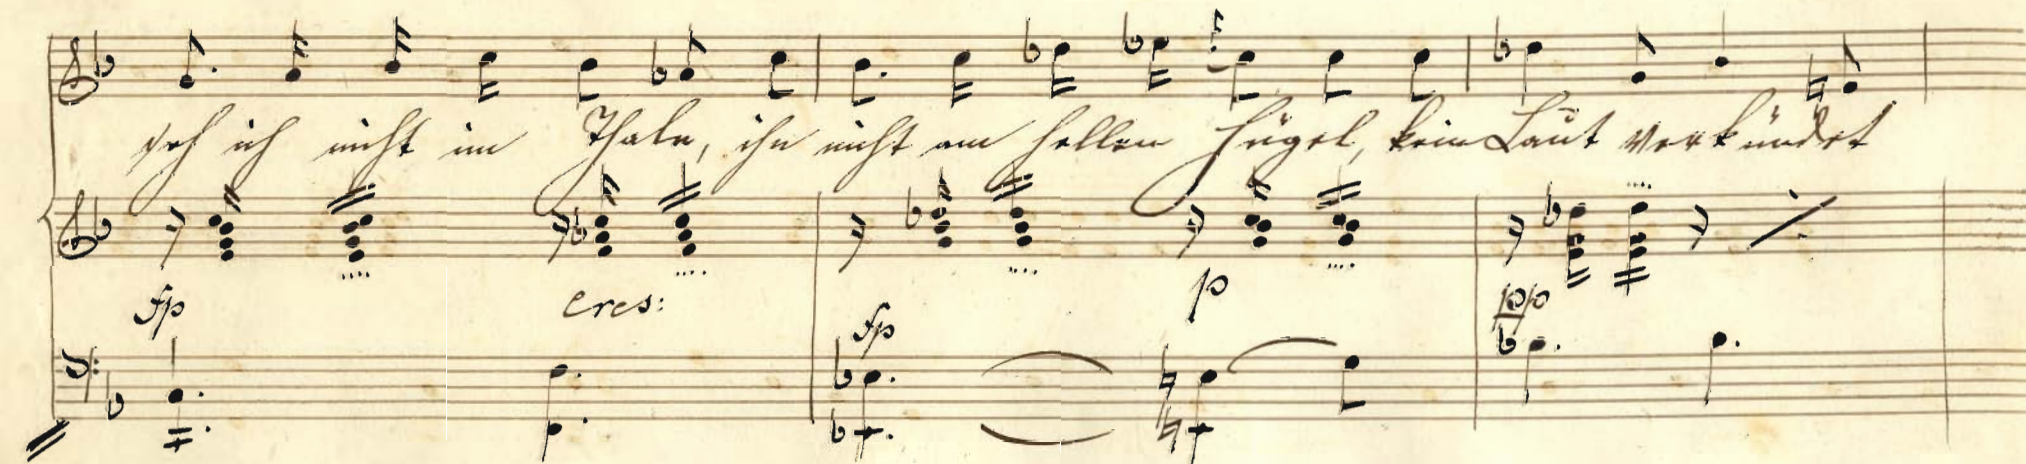 seh ich nicht im Thale, ihn nicht am hellen Hügel, kein Laut verkündet
fp cres: fp p pp